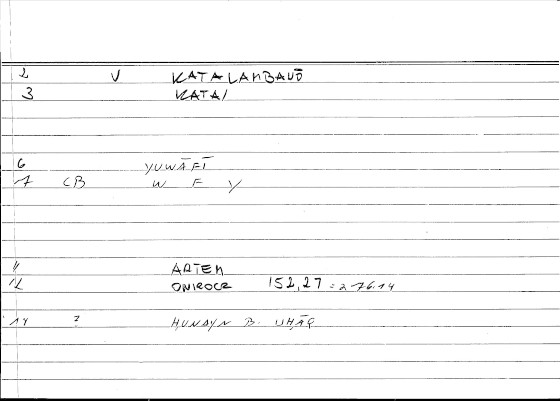 2 V KATALAMBAVŌ
3 KATAI
6 YUWĀFĪ
7 CB W F Y
11 ARTEM
12 ONIROCR 152,27 = 276.14
14 ? ḤUNAYN B. ISḤĀQ